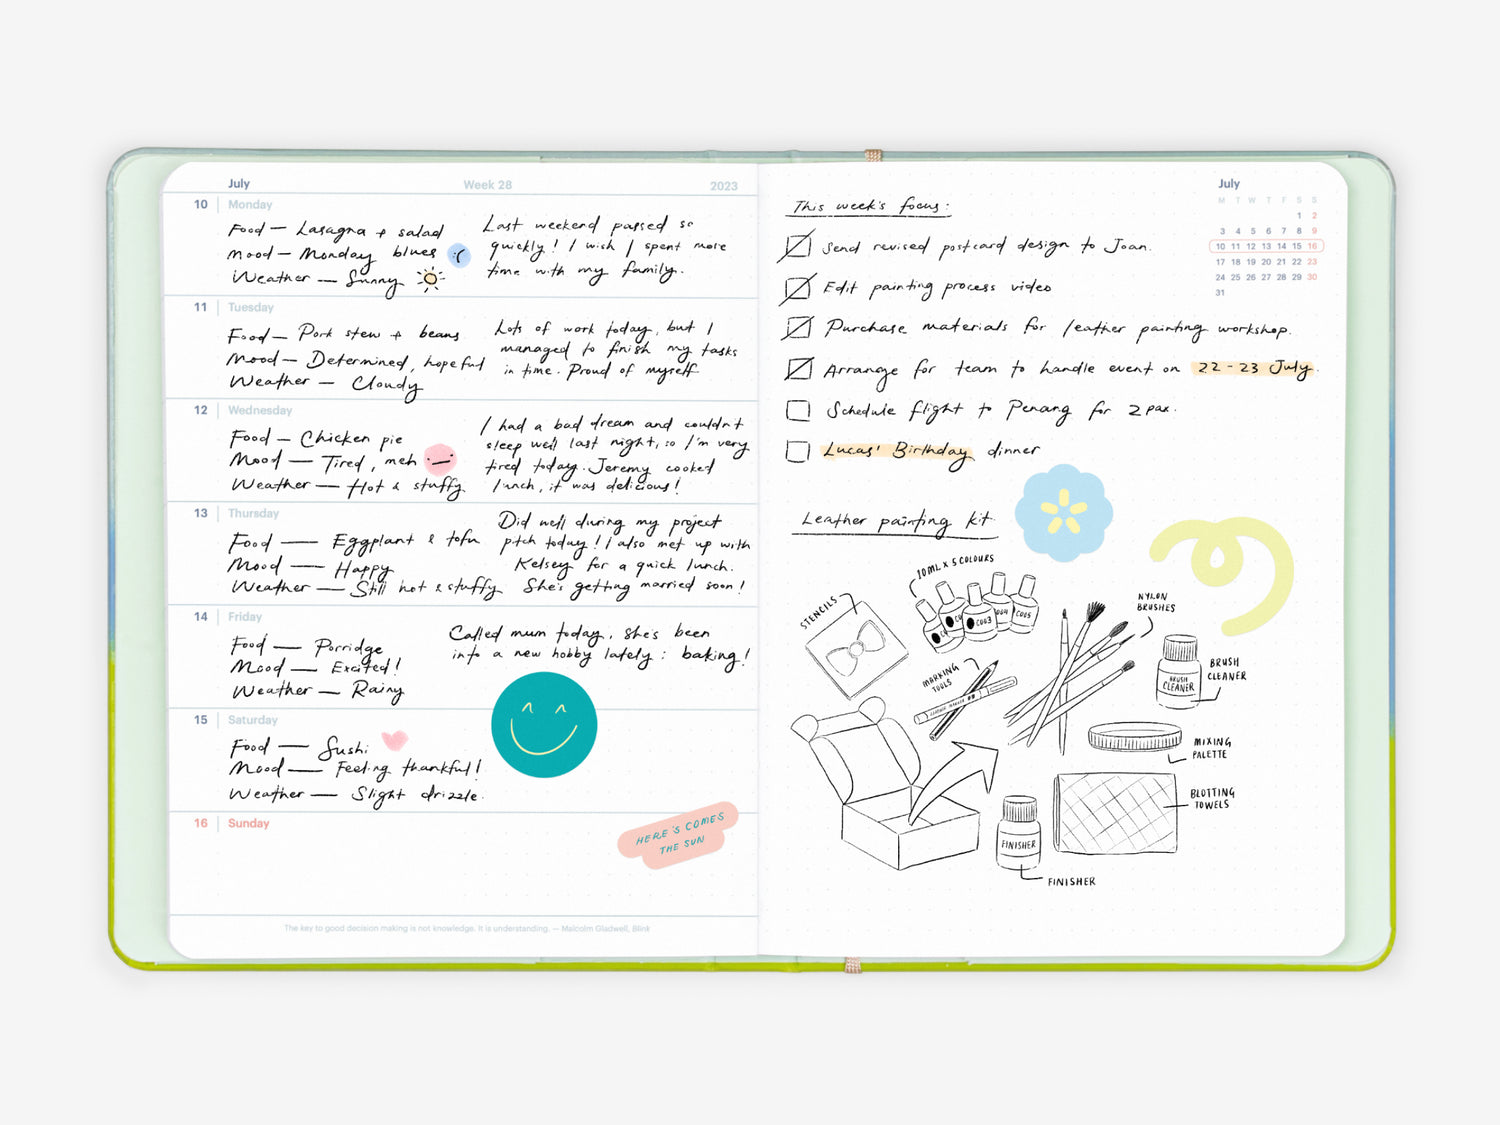 July
Week 28
2023
10 Monday
Food — Lasagna + salad
Mood — Monday blues
Weather — Sunny
Last weekend passed so
quickly! I wish I spent more
time with my family.
11 Tuesday
Food — Pork stew + beans
Mood — Determined, hopeful
Weather — Cloudy
Lots of work today, but I
managed to finish my tasks
in time. Proud of myself.
12 Wednesday
Food — Chicken pie
Mood — Tired, meh
Weather — Hot & stuffy
I had a bad dream and couldn't
sleep well last night, so I'm very
tired today. Jeremy cooked
lunch, it was delicious!
13 Thursday
Food — Eggplant & tofu
Mood — Happy
Weather — Still hot & stuffy
Did well during my project
pitch today! I also met up with
Kelsey for a quick lunch.
She's getting married soon!
14 Friday
Food — Porridge
Mood — Excited!
Weather — Rainy
Called mum today, she's been
into a new hobby lately: baking!
15 Saturday
Food — Sushi
Mood — Feeling thankful!
Weather — Slight drizzle.
16 Sunday
HERE'S COMES
THE SUN
The key to good decision making is not knowledge. It is understanding. — Malcolm Gladwell, Blink
This week's focus:
Send revised postcard design to Joan.
Edit painting process video
Purchase materials for leather painting workshop.
Arrange for team to handle event on 22 - 23 July.
Schedule flight to Penang for 2 pax.
Lucas' Birthday dinner
July
M T W T F S S
1 2
3 4 5 6 7 8 9
10 11 12 13 14 15 16
17 18 19 20 21 22 23
24 25 26 27 28 29 30
31
Leather painting kit
10ML X 5 COLOURS
STENCILS
C003
C004
C005
NYLON
BRUSHES
MARKING
TOOLS
BRUSH
CLEANER
BRUSH
CLEANER
MIXING
PALETTE
BLOTTING
TOWELS
FINISHER
FINISHER